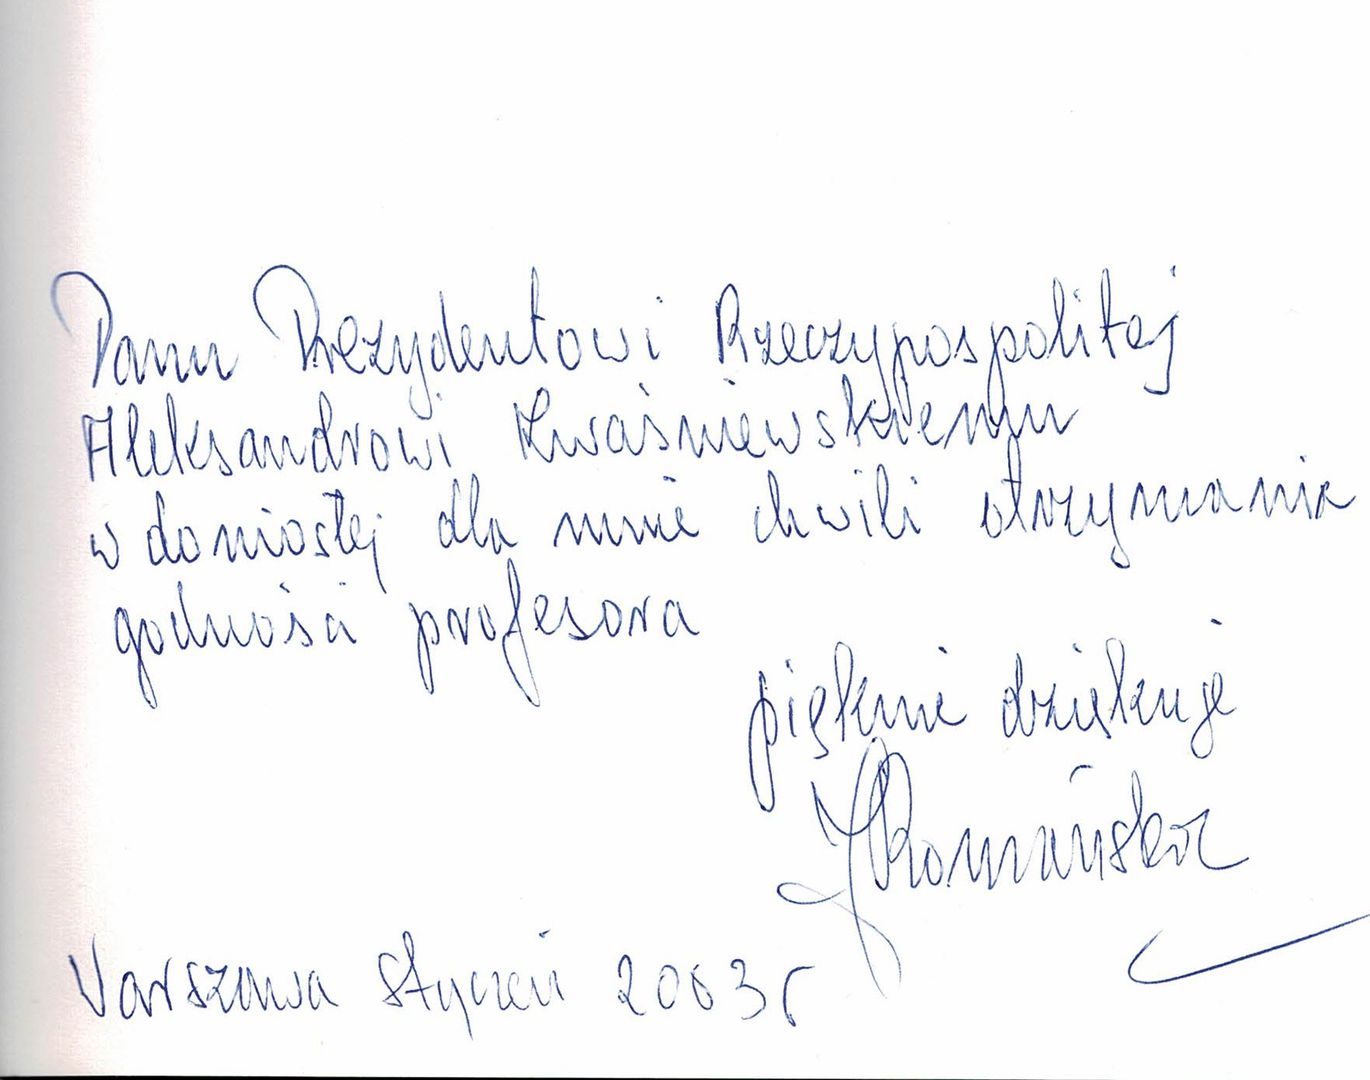 Panu Prezydentowi Rzeczypospolitej
Aleksandrowi Kwaśniewskiemu
w doniosłej dla mnie chwili otrzymania
godności profesora
pięknie dziękuję
J Romańska
Warszawa styczeń 2003 r